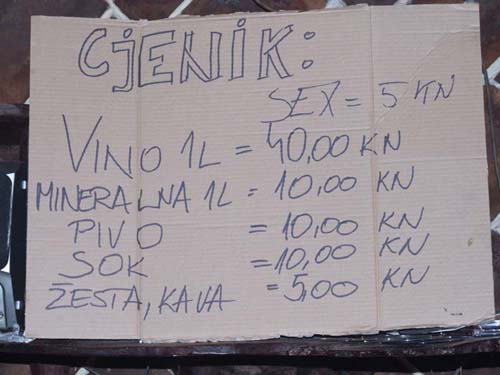 CjENiK:
SEX = 5 KN
VINO 1L = 40,00 KN
MINERALNA 1L = 10,00 KN
PIVO = 10,00 KN
SOK = 10,00 KN
ŽESTA, KAVA = 5,00 KN